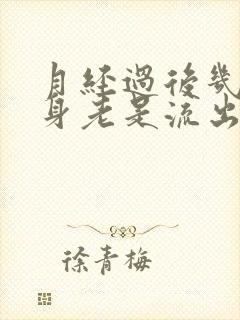 月经過後幾
身老是流出
徐青梅